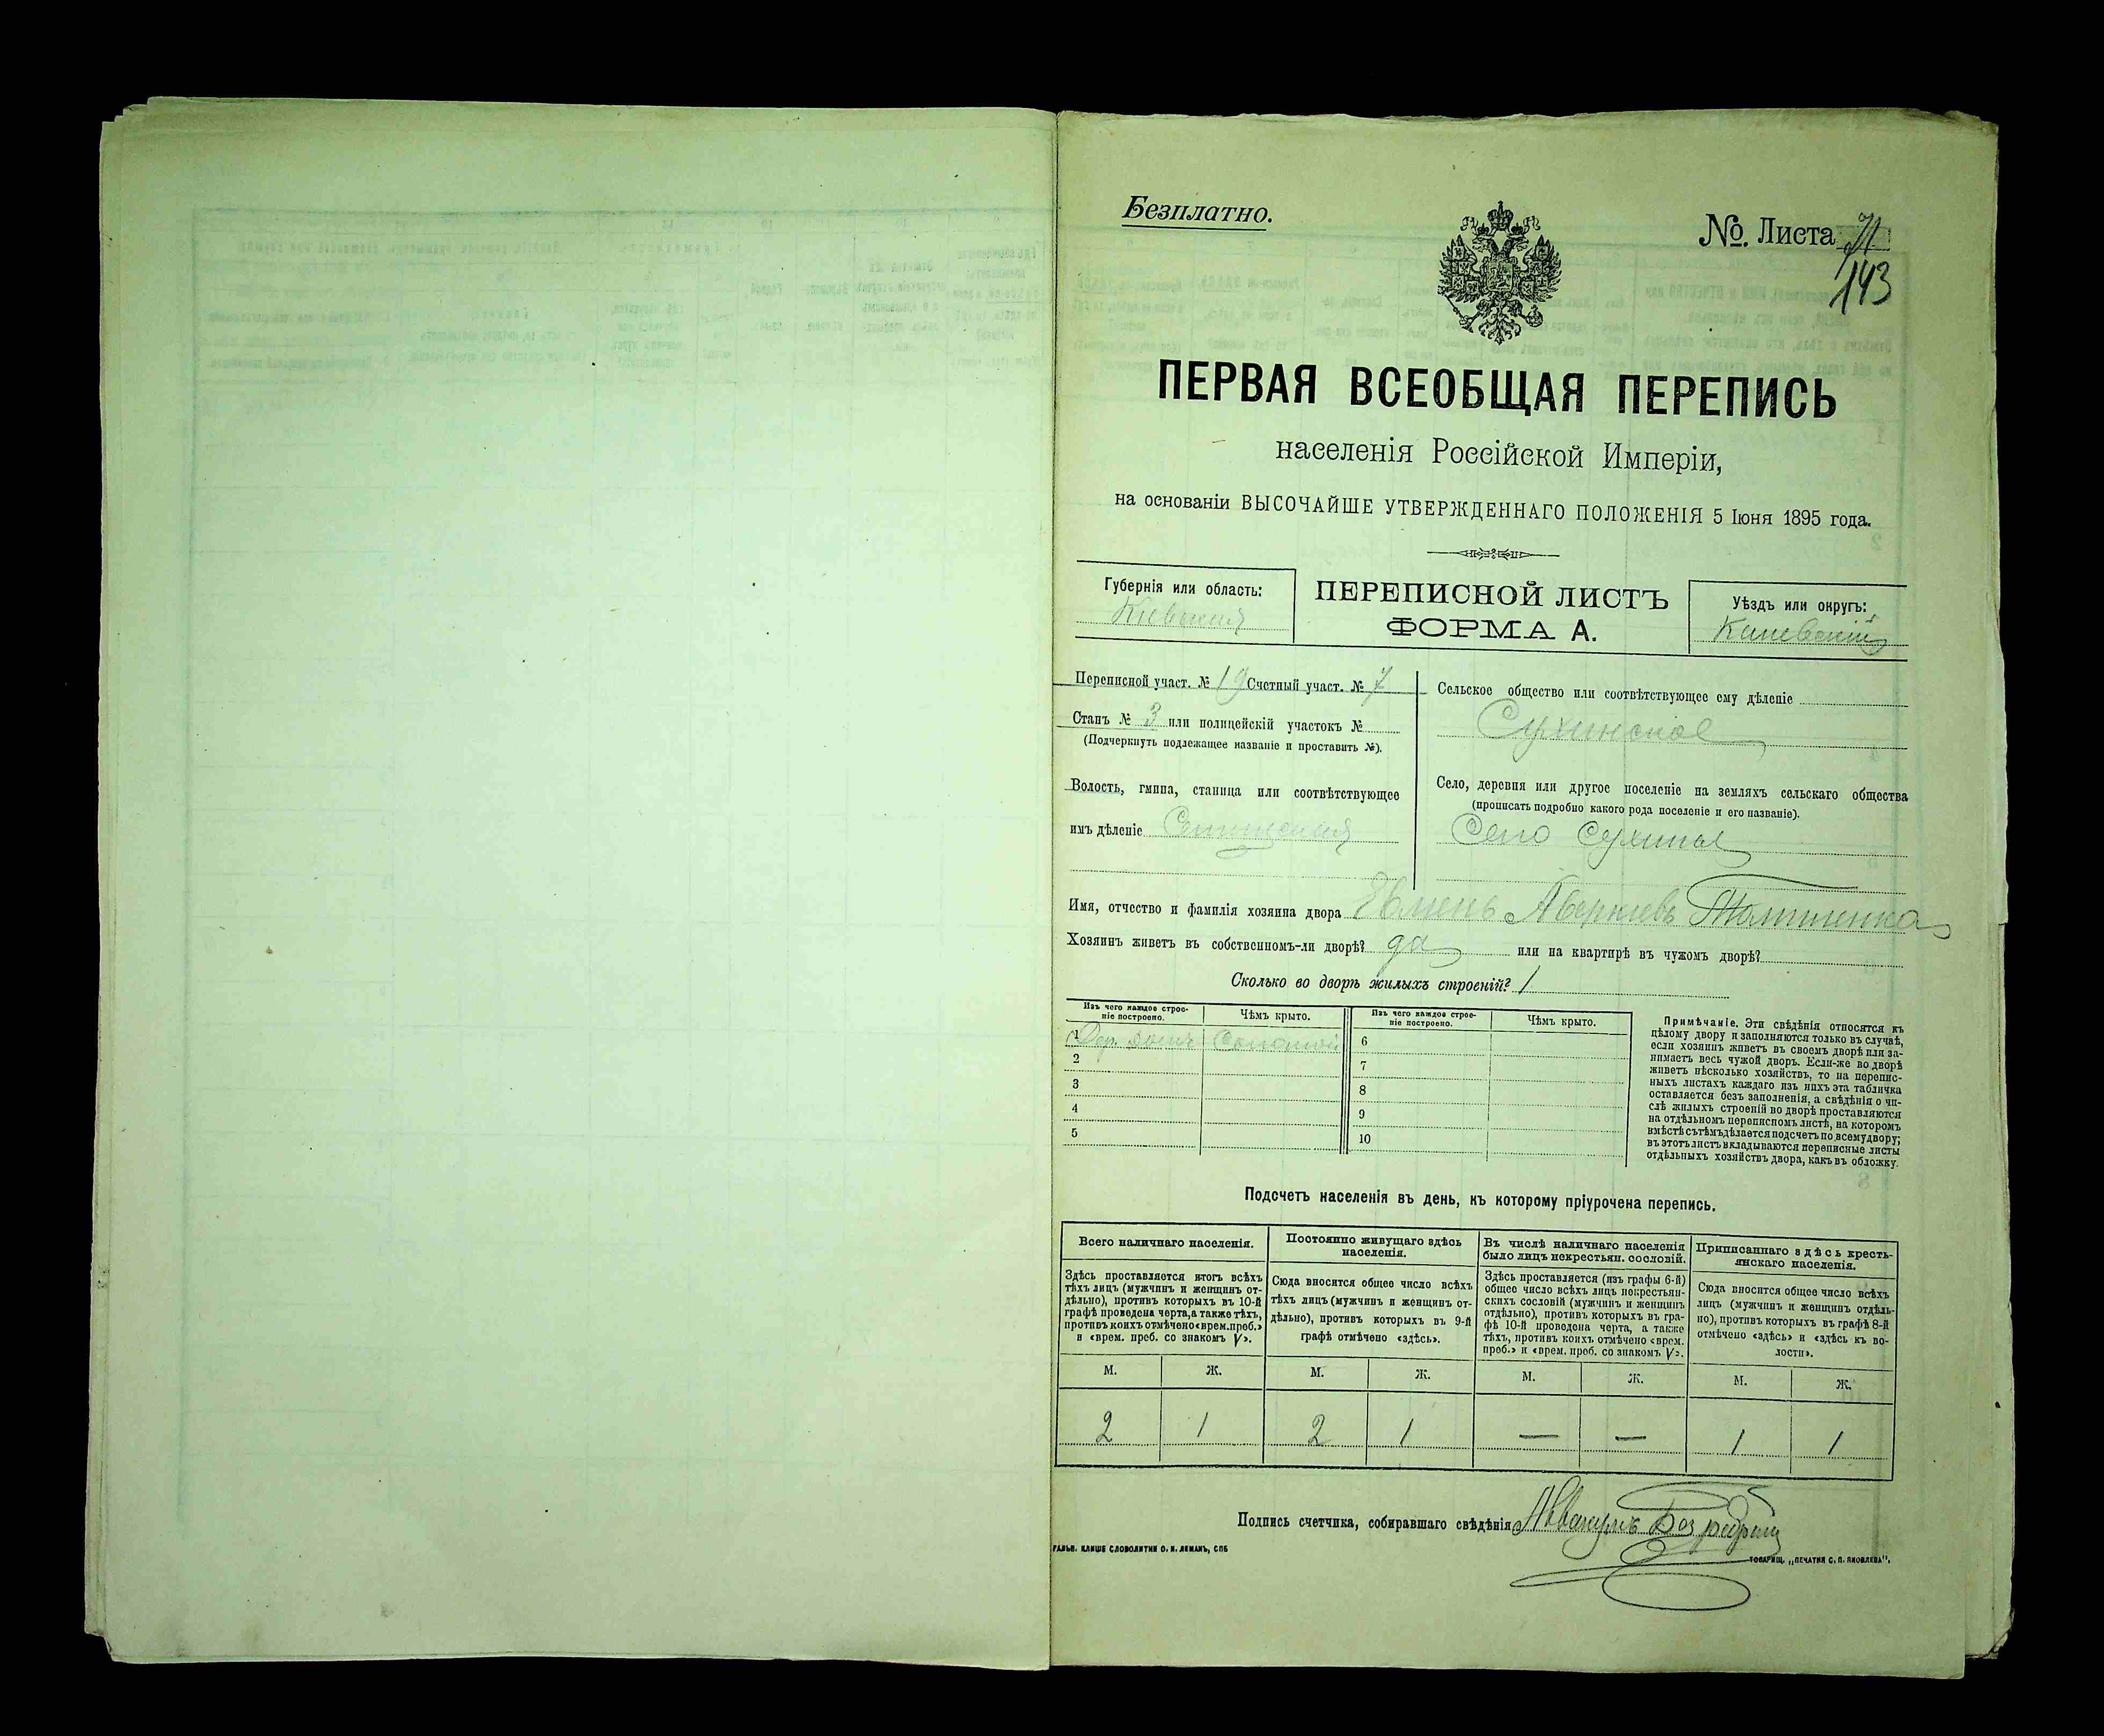 Безплатно.
№. Листа 71
143
ПЕРВАЯ ВСЕОБЩАЯ ПЕРЕПИСЬ
населенія Россійской Имперіи,
на основаніи ВЫСОЧАЙШЕ УТВЕРЖДЕННАГО ПОЛОЖЕНІЯ 5 Іюня 1895 года.
Губернія или область:
Кіевская
ПЕРЕПИСНОЙ ЛИСТЪ
ФОРМА А.
Уѣздъ или округъ:
Каневскій
Переписной участ. № 19 Счетный участ. № 7
Станъ № 3 или полицейскій участокъ №
(Подчеркнуть подлежащее названіе и проставить №).
Волость, гмина, станица или соотвѣтствующее
имъ дѣленіе
Сельское общество или соотвѣтствующее ему дѣленіе
Сухинское
Село, деревня или другое поселеніе на земляхъ сельскаго общества
(прописать подробно какого рода поселеніе и его названіе).
Село Сухины
Имя, отчество и фамилія хозяина двора Евмень Аверкіевъ
Хозяинъ живетъ въ собственномъ-ли дворѣ? да или на квартирѣ въ чужомъ дворѣ?
Сколько во дворѣ жилыхъ строеній? 1
Изъ чего каждое строе-
ніе построено.
Чѣмъ крыто.
1 Дер. Соломой
2
3
4
5
Изъ чего каждое строе-
ніе построено.
Чѣмъ крыто.
6
7
8
9
10
Примѣчаніе. Эти свѣдѣнія относятся къ
цѣлому двору и заполняются только въ случаѣ,
если хозяинъ живетъ въ своемъ дворѣ или за-
нимаетъ весь чужой дворъ. Если-же во дворѣ
живетъ нѣсколько хозяйствъ, то на перепис-
ныхъ листахъ каждаго изъ нихъ эта табличка
оставляется безъ заполненія, а свѣдѣнія о чи-
слѣ жилыхъ строеній во дворѣ проставляются
на отдѣльномъ переписномъ листѣ, на которомъ
вмѣстѣ съ тѣмъ дѣлается подсчетъ по всему двору;
въ этотъ листъ вкладываются переписные листы
отдѣльныхъ хозяйствъ двора, какъ въ обложку.
Подсчетъ населенія въ день, къ которому пріурочена перепись.
Всего наличнаго населенія.
Здѣсь проставляется итогъ всѣхъ
тѣхъ лицъ (мужчинъ и женщинъ от-
дѣльно), противъ которыхъ въ 10-й
графѣ проведена черта, а также тѣхъ,
противъ коихъ отмѣчено «врем. преб.»
и «врем. преб. со знакомъ V».
М. Ж.
2 1
Постоянно живущаго здѣсь
населенія.
Сюда вносится общее число всѣхъ
тѣхъ лицъ (мужчинъ и женщинъ от-
дѣльно), противъ которыхъ въ 9-й
графѣ отмѣчено «здѣсь».
М. Ж.
2 1
Въ числѣ наличнаго населенія
было лицъ некрестьян. сословій.
Здѣсь проставляется (изъ графы 6-й)
общее число всѣхъ лицъ некрестьян-
скихъ сословій (мужчинъ и женщинъ
отдѣльно), противъ которыхъ въ гра-
фѣ 10-й проведена черта, а также
тѣхъ, противъ коихъ отмѣчено «врем.
преб.» и «врем. преб. со знакомъ V».
М. Ж.
— —
Приписаннаго здѣсь кресть-
янскаго населенія.
Сюда вносится общее число всѣхъ
лицъ (мужчинъ и женщинъ отдѣль-
но), противъ которыхъ въ графѣ 8-й
отмѣчено «здѣсь» и «здѣсь въ во-
лости».
М. Ж.
1 1
Подпись счетчика, собиравшаго свѣдѣнія
ГАЛЬВ. КЛИШЕ СЛОВОЛИТНИ О. И. ЛЕМАНЪ, СПБ
ТОВАРИЩ. „ПЕЧАТНЯ С. П. ЯКОВЛЕВА".